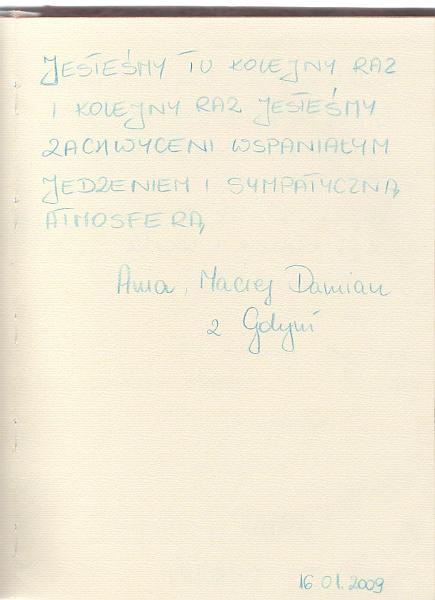 JESTEŚMY TU KOLEJNY RAZ
I KOLEJNY RAZ JESTEŚMY
ZACHWYCENI WSPANIAŁYM
JEDZENIEM I SYMPATYCZNĄ
ATMOSFERĄ
Anna, Maciej Damian
z Gdyni
16.01.2009